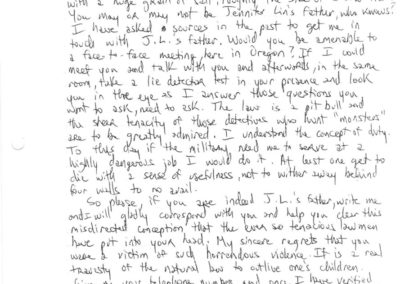 with a huge grain of salt, roughly the size of
You may or may not be Jennifer Lin's father, who knows?
I have asked sources in the past to get me in
touch with J.L.'s father. Would you be amenable to
a face-to-face meeting here in Oregon? If I could
meet you and talk with you and afterwards, in the same
room, take a lie detector test in your presence and look
you in the eye as I answer those questions you
want to ask, need to ask. The law is a pit bull and
the sheer tenacity of those detectives who hunt "monsters"
are to be greatly admired. I understand the concept of duty.
To this day if the military need me to serve at a
highly dangerous job I would do it. At least one get to
die with a sense of usefulness, not to wither away behind
four walls to no avail.
So please, if you are indeed J.L.'s father, write me
and I will gladly correspond with you and help you clear this
misdirected conception that the ever so tenacious lawmen
have put into your head. My sincere regrets that you
were a victim of such horrendous violence. It is a real
travesty of the natural law to outlive one's children.
your telephone number and once I have verified